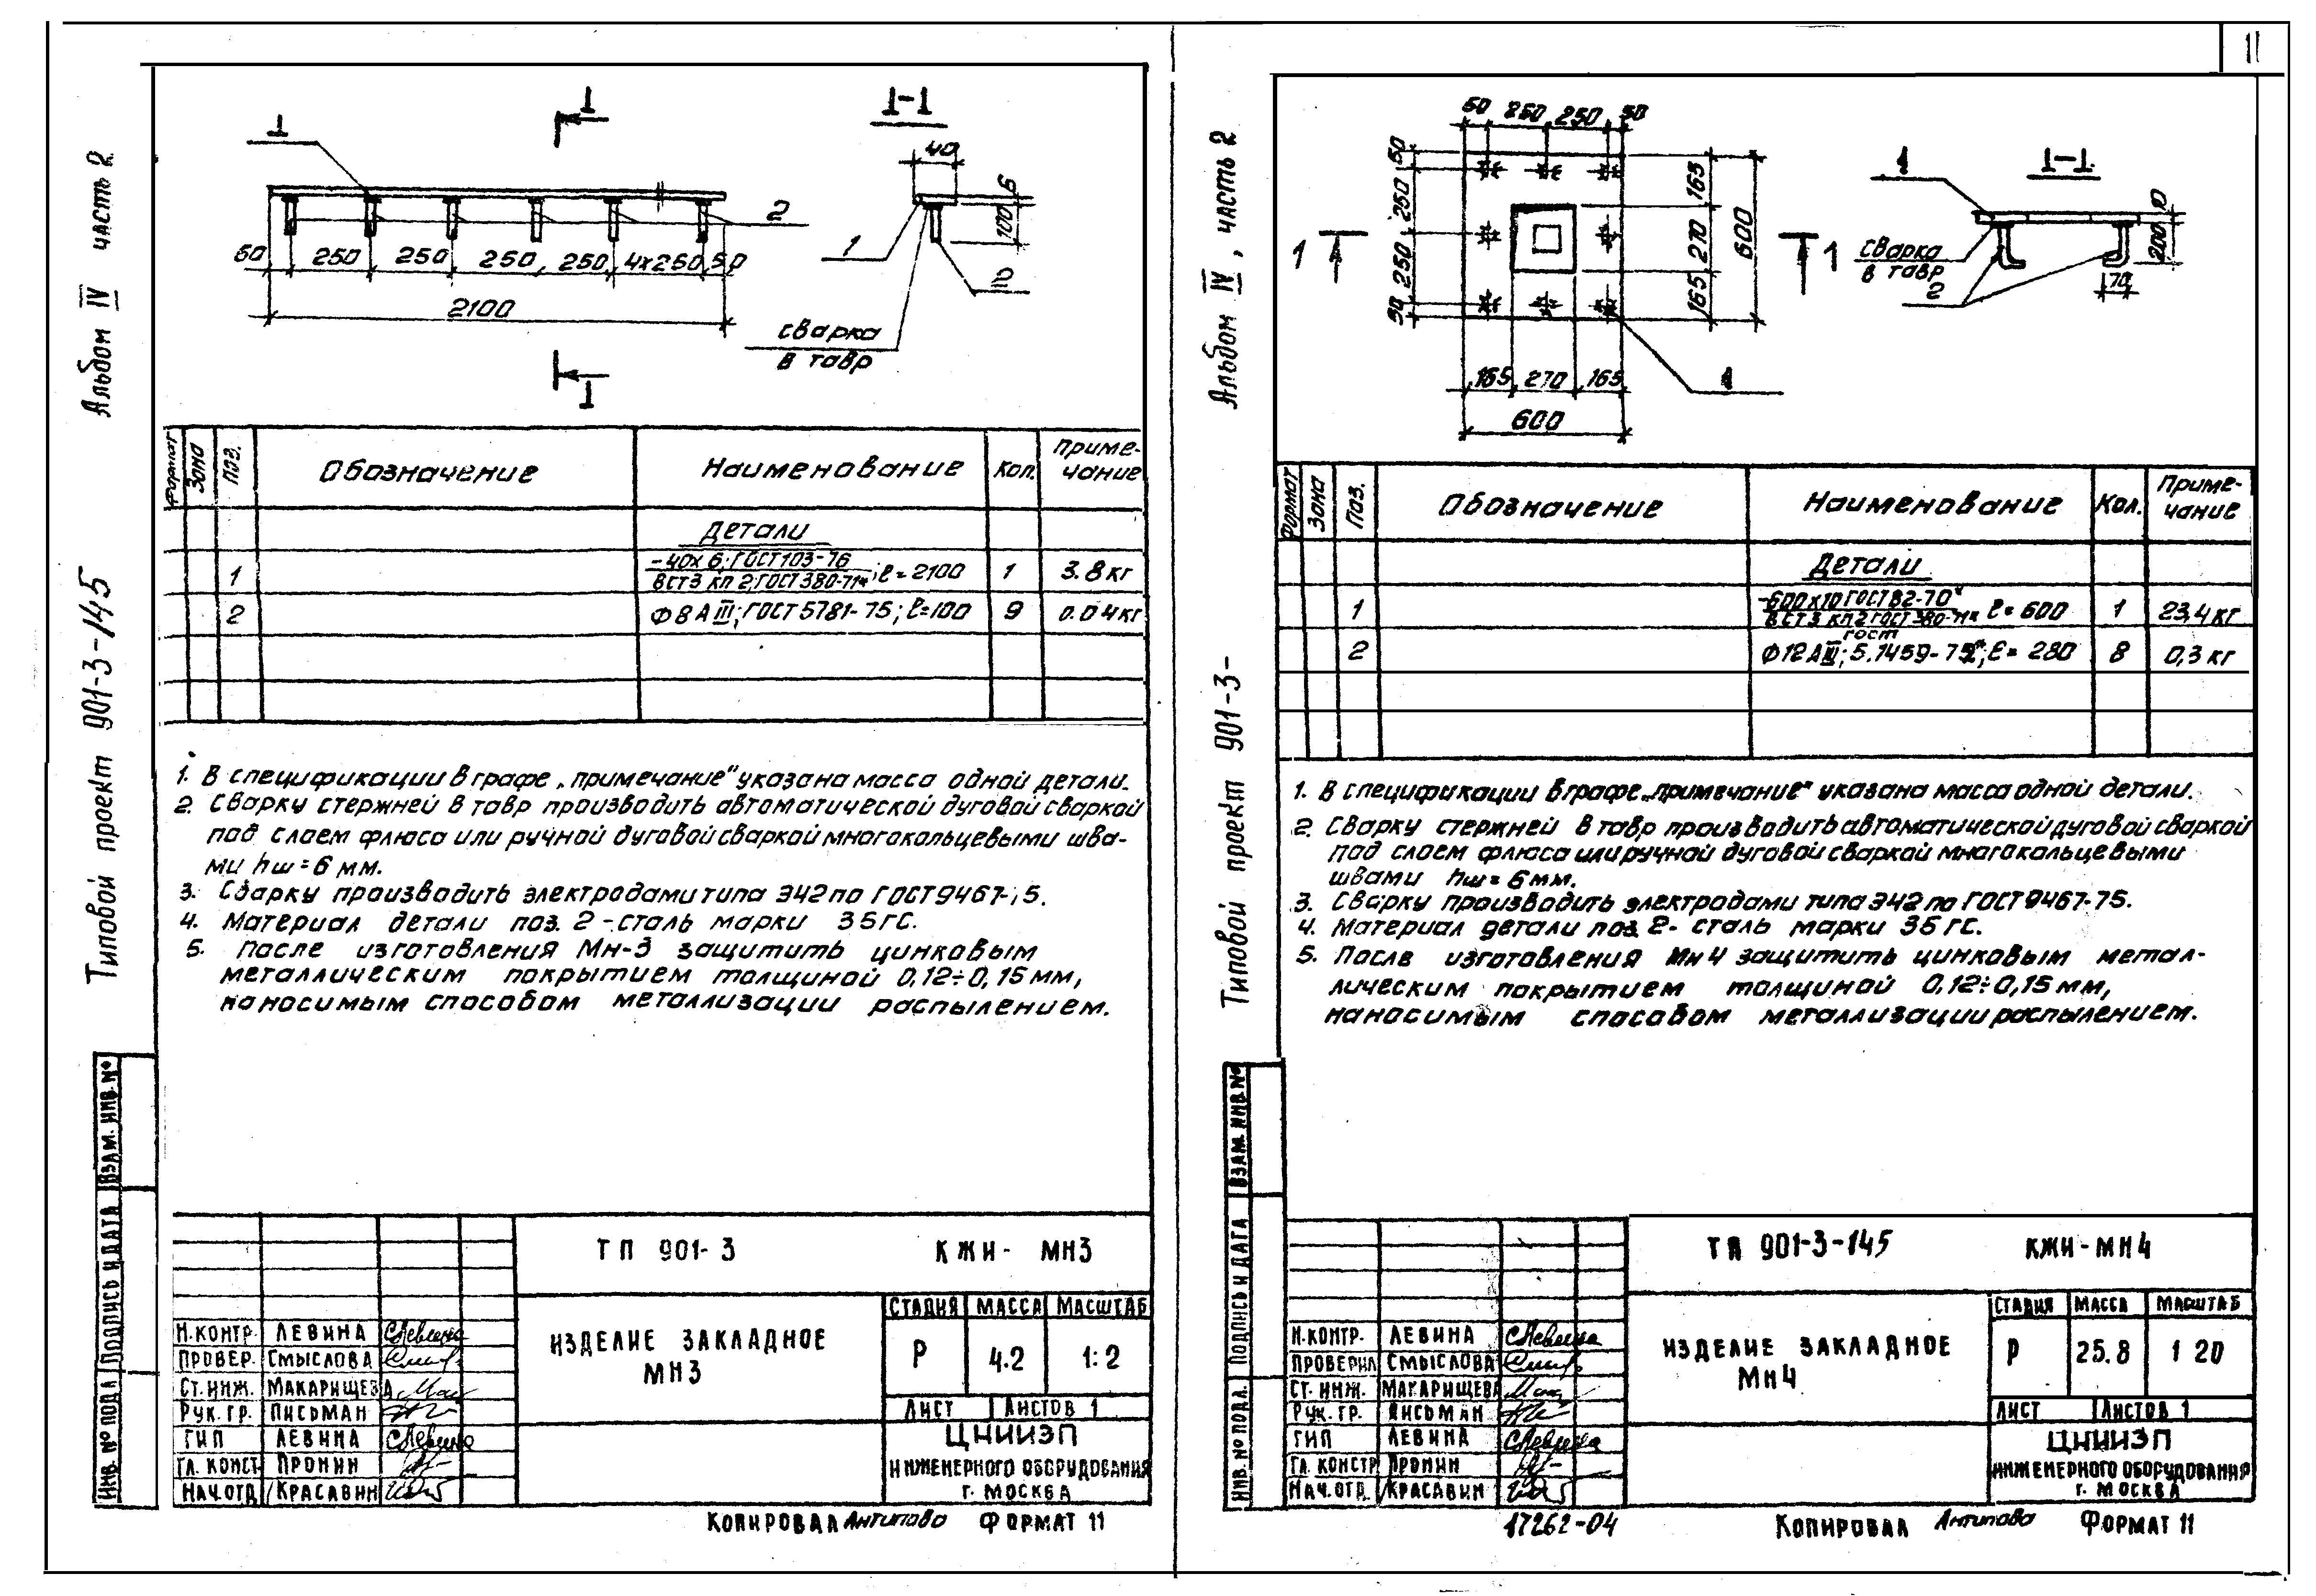 11
Альбом IV часть 2
Типовой проект 901-3-145
Взам. инв. №
Подпись и дата
Инв. № подл
1
1
1-1
40
6
100
1
2
2
50 250 250 250 250 4×250 50
2100
сварка
в тавр
1
Формат Зона Поз. Обозначение Наименование Кол. Приме-
чание
Детали
1 -40×6; ГОСТ 103-76
ВСТ3 кп 2; ГОСТ 380-71*; ℓ=2100 1 3.8 кг
2 Ф8АIII; ГОСТ 5781-75; ℓ=100 9 0.04 кг
1. В спецификации в графе „примечание" указана масса одной детали.
2. Сварку стержней в тавр производить автоматической дуговой сваркой
под слоем флюса или ручной дуговой сваркой многокольцевыми шва-
ми hш=6 мм.
3. Сварку производить электродами типа Э42 по ГОСТ 9467-
4. Материал детали поз. 2 - сталь марки 35ГС.
5. После изготовления Мн-3 защитить цинковым
металлическим покрытием толщиной 0,12÷0,15 мм,
наносимым способом металлизации распылением.
ТП 901-3 КЖИ- МН3
Изделие закладное
МН3
Стадия Масса Масштаб
Р 4.2 1:2
Лист Листов 1
ЦНИИЭП
инженерного оборудования
г. Москва
Н.контр. Левина
Провер. Смыслова
Ст. инж. Макарищева
Рук. гр. Письман
ГИП Левина
Гл. конст Пронин
Нач. отд Красавин
Копировал Антипова Формат 11
Альбом IV, часть 2
Типовой проект 901-3-
Взам. инв. №
Подпись и дата
Инв. № подл.
50 250 250 50
50 250 250 50
165 270 165
600
1 1
165 270 165
600
1
1-1
1
10
200
70
сварка
в тавр
2
Формат Зона Поз. Обозначение Наименование Кол. Приме-
чание
Детали
1 -600×10 ГОСТ 82-70*
ВСТ3 кп2 ГОСТ 380-71* ℓ=600 1 23,4 кг
2 Ф12АIII; ГОСТ 5.1459-72*; ℓ=280 8 0,3 кг
1. В спецификации в графе „примечание" указана масса одной детали.
2. Сварку стержней в тавр производить автоматической дуговой сваркой
под слоем флюса или ручной дуговой сваркой многокольцевыми
швами hш=6 мм.
3. Сварку производить электродами типа Э42 по ГОСТ 9467-75.
4. Материал детали поз. 2 - сталь марки 35ГС.
5. После изготовления Мн4 защитить цинковым метал-
лическим покрытием толщиной 0,12÷0,15 мм,
наносимым способом металлизации распылением.
ТП 901-3-145 КЖИ-МН4
Изделие закладное
Мн4
Стадия Масса Масштаб
Р 25.8 1 20
Лист Листов 1
ЦНИИЭП
инженерного оборудования
г. Москва
Н.контр. Левина
Проверил Смыслова
Ст. инж. Макарищева
Рук. гр. Письман
ГИП Левина
Гл. констр Пронин
Нач. отд. Красавин
17262-04 Копировал Антипова Формат 11